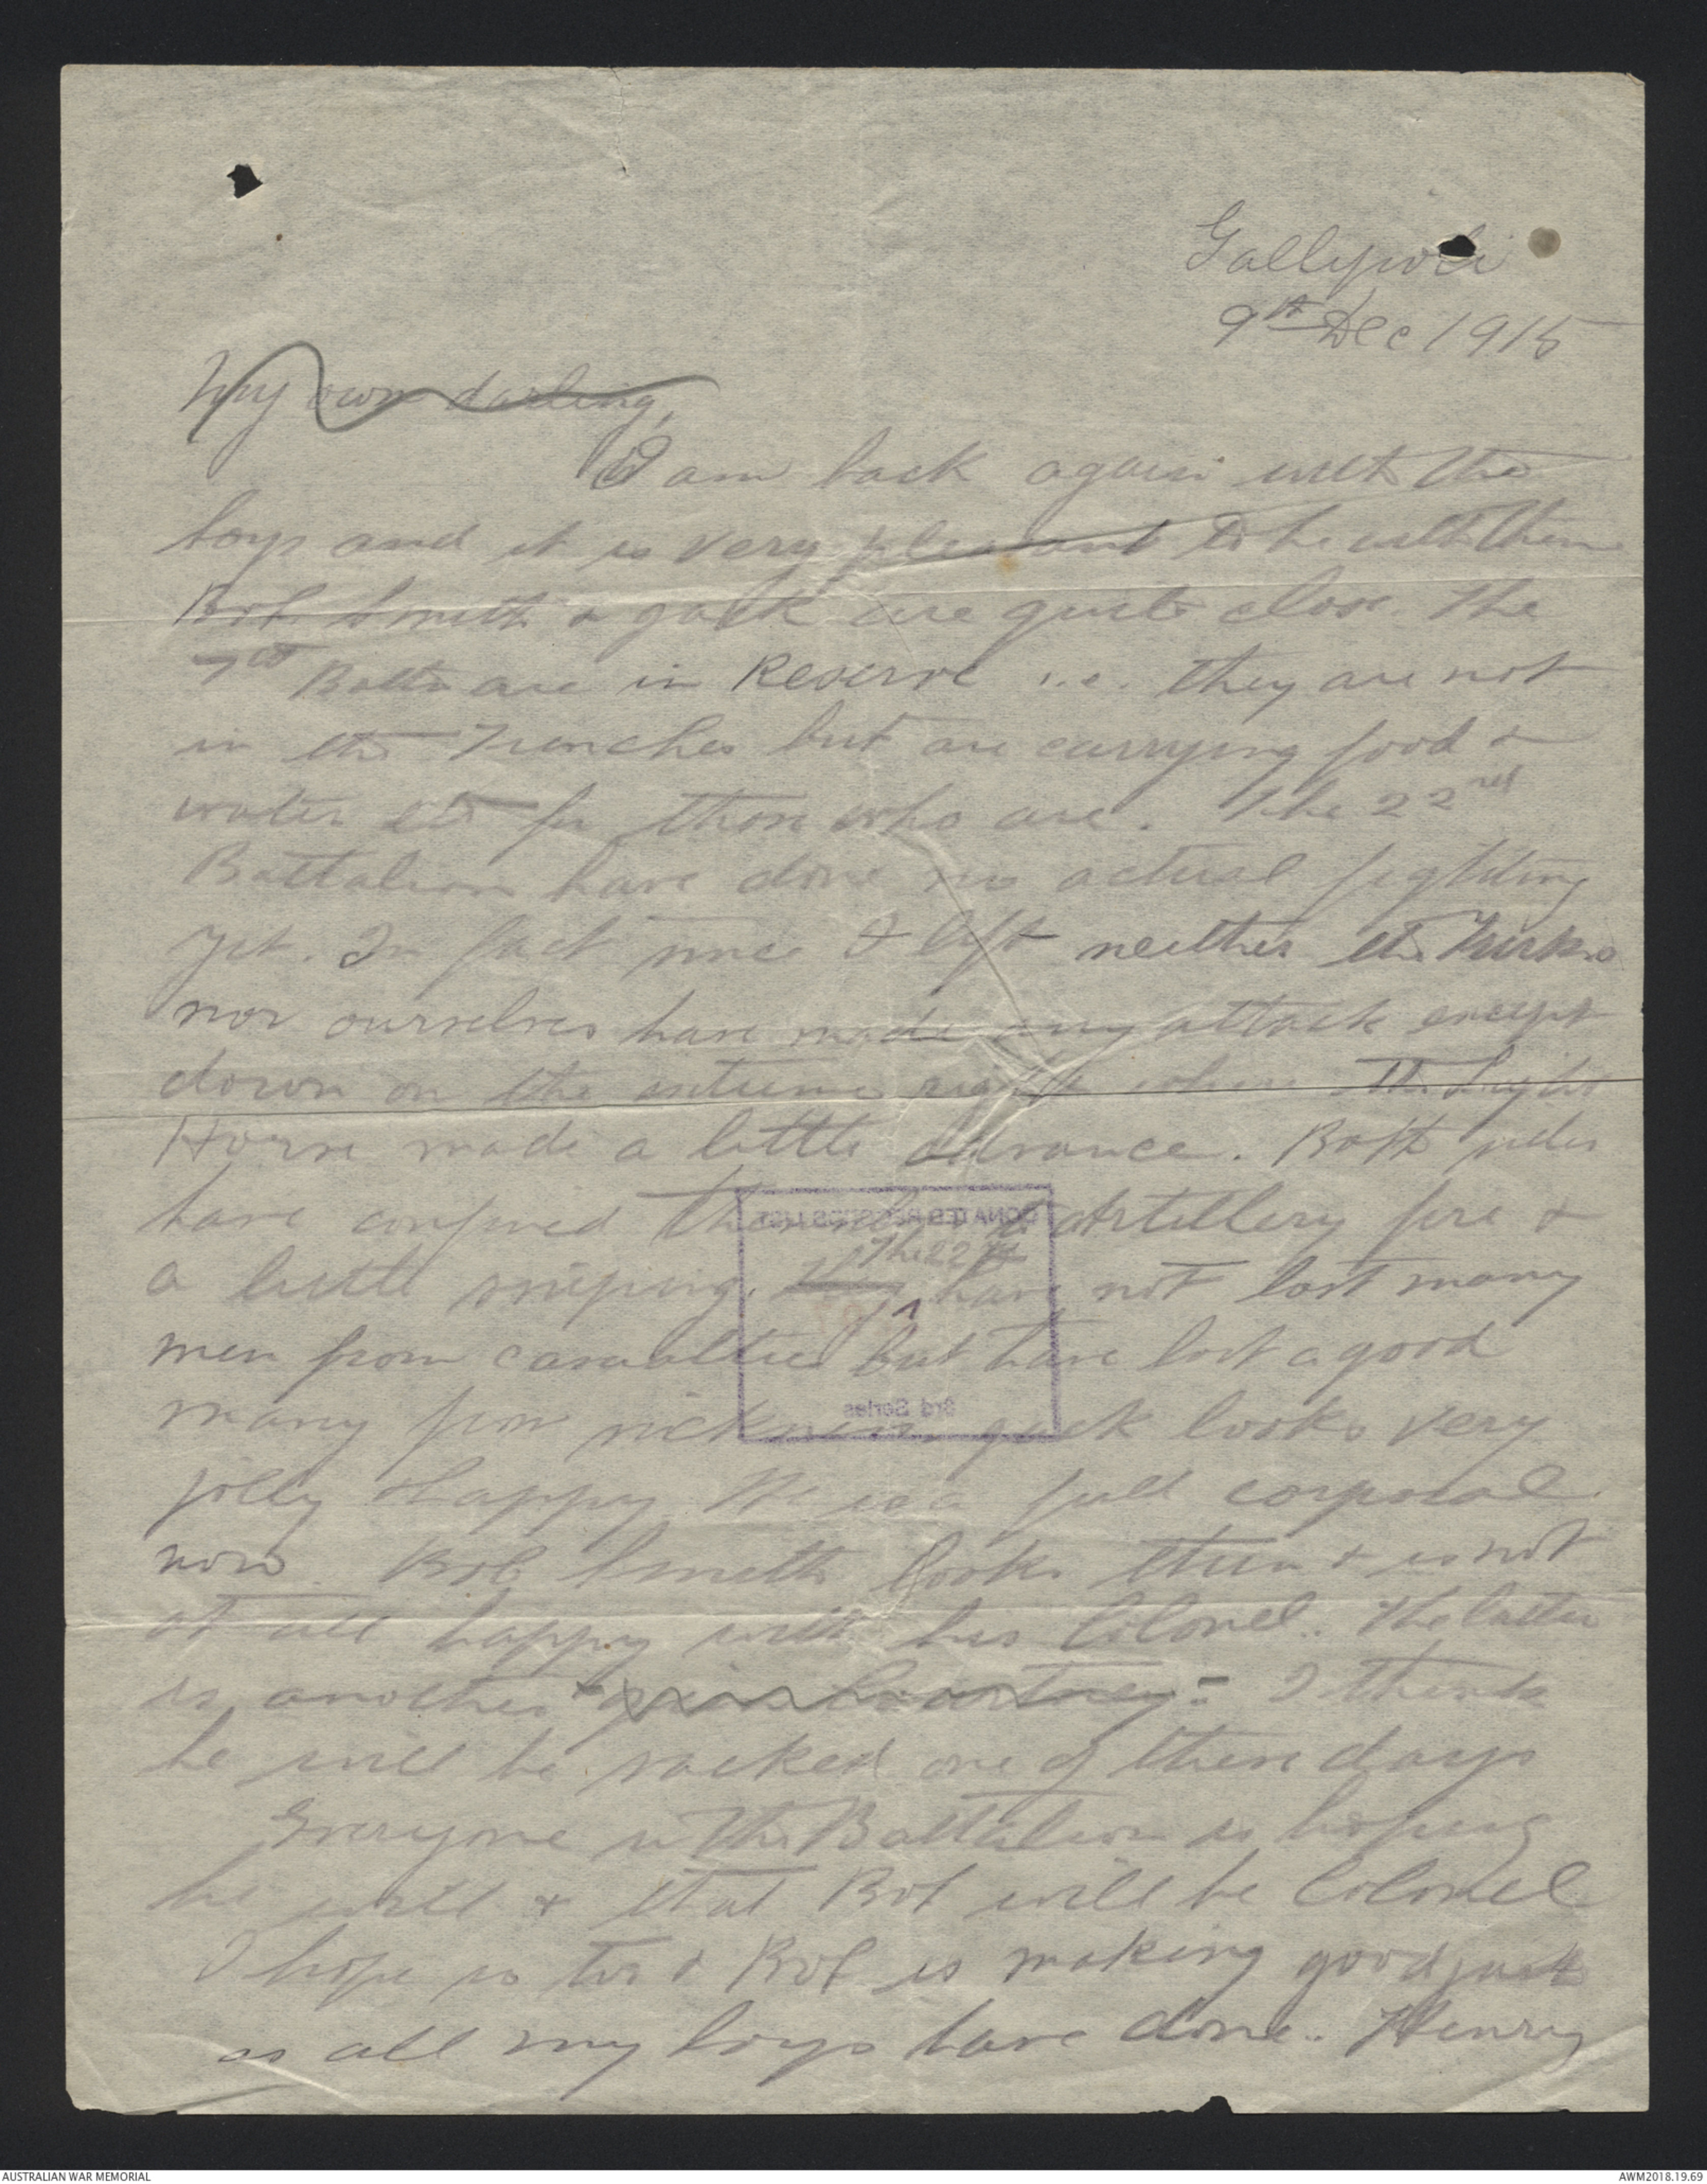 Gallipoli
9th Dec 1915
My own darling,
I am back again with the
boys and it is very pleasant to be with them
Bob Smith & Jack are quite close. The
7th Battn are in Reserve i.e. they are not
in the Trenches but are carrying food &
water etc for those who are. The 22nd
Battalion have done no actual fighting
yet. In fact since I left neither the Turks
nor ourselves have made any attack except
down on the extreme right where the Light
Horse made a little advance. Both sides
have confined themselves to Artillery fire &
a little sniping. The 22nd have not lost many
men from casualties but have lost a good
many from sickness. Jack looks very
jolly & happy He is a full corporal
now. Bob Smith looks thin & is not
at all happy with his Colonel. The latter
is another " " I think
he will be sacked one of these days
Everyone in the Battalion is hoping
he will & that Bob will be Colonel
I hope so too & Bob is making good just
as all my boys have done. Henry
DONATED RECORDS LIST
3rd Series
AUSTRALIAN WAR MEMORIAL
AWM2018.19.69